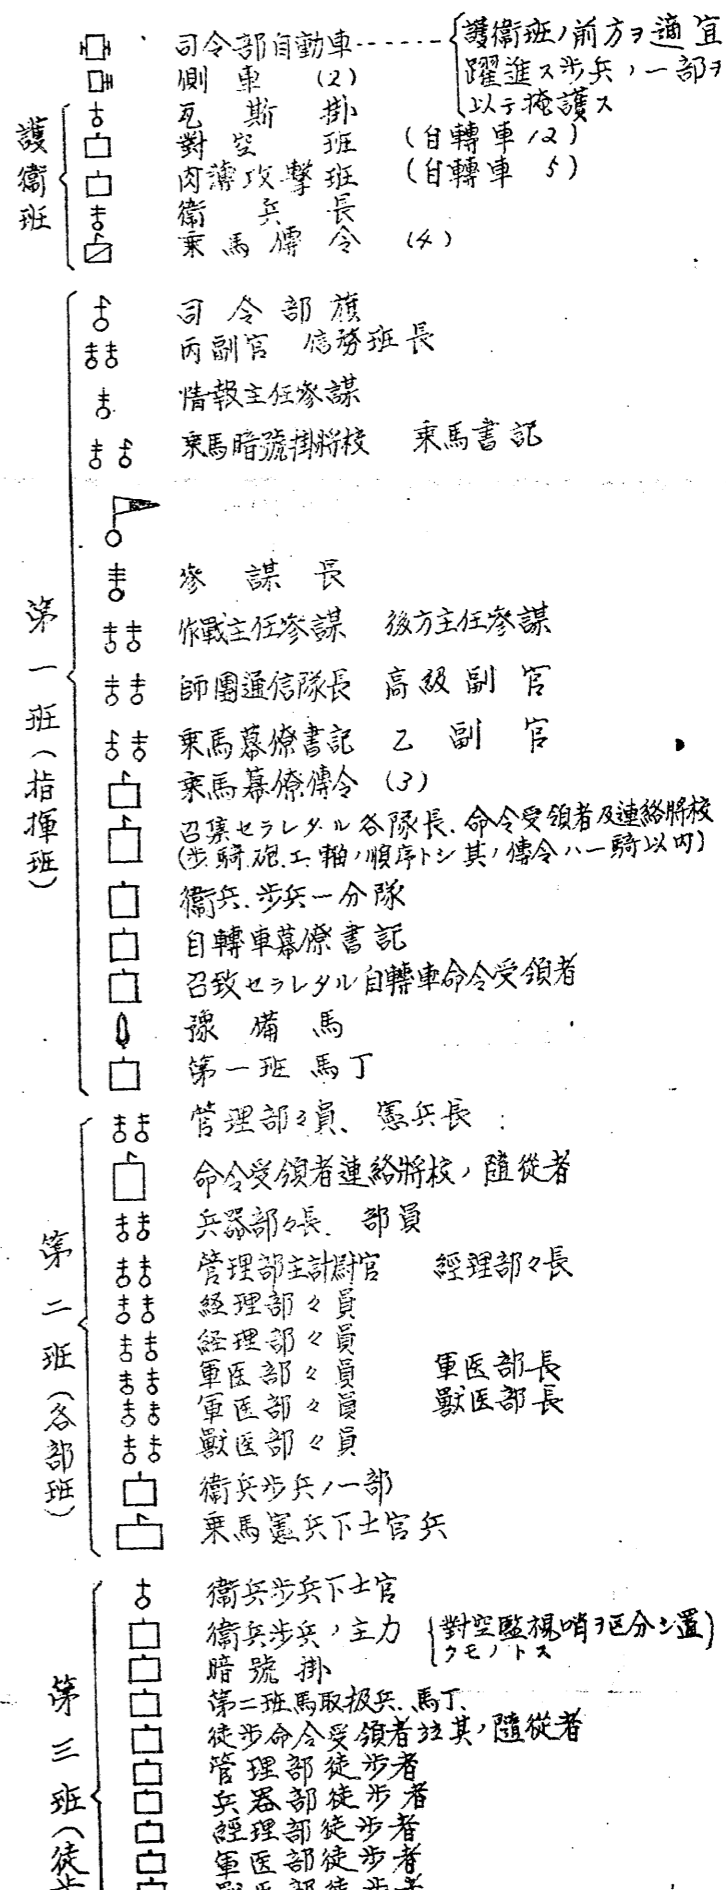 司令部自動車-----護衛班ノ前方ヲ適宜
躍進ス歩兵ノ一部ヲ
以テ掩護ス
側車 (2)
瓦斯掛
對空班 (自轉車12)
肉薄攻擊班 (自轉車 5)
衛兵長
乗馬傳令 (4)
護衛班
司令部旗
丙副官 信務班長
情報主任參謀
乗馬暗號掛將校 乗馬書記
參謀長
作戰主任參謀 後方主任參謀
師團通信隊長 高級副官
乗馬幕僚書記 乙副官
乗馬幕僚傳令 (3)
召集セラレタル各隊長、命令受領者及連絡將校
(步.騎.砲.工.輜ノ順序トシ其ノ傳令ハ一騎以内)
衛兵.步兵一分隊
自轉車幕僚書記
召致セラレタル自轉車命令受領者
豫備馬
第一班馬丁
第一班(指揮班)
管理部々員、憲兵長
命令受領者連絡將校ノ隨從者
兵器部々長. 部員
管理部主計尉官 經理部々長
経理部々員
経理部々員
軍医部々員 軍医部長
軍医部々員 獸医部長
獸医部々員
衛兵步兵ノ一部
乗馬憲兵下士官兵
第二班(各部班)
衛兵步兵下士官
衛兵步兵ノ主力 (對空監視哨ヲ区分シ置
クモノトス)
暗號掛
第二班馬取扱兵.馬丁.
徒步命令受領者竝其ノ隨從者
管理部徒步者
兵器部徒步者
經理部徒步者
軍医部徒步者
獸医部徒步者
第三班(徒步